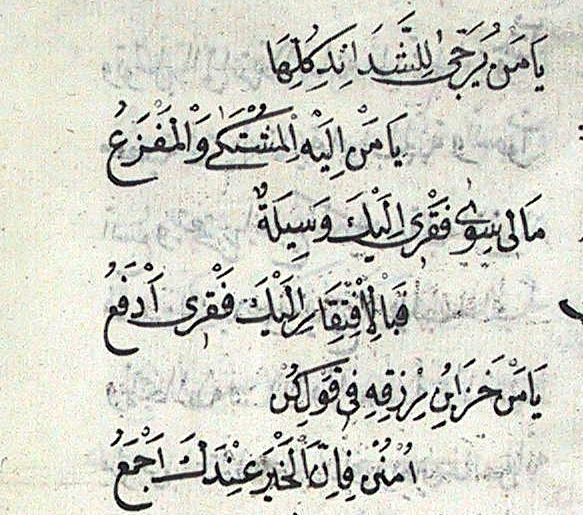 يَا مَنْ يُرَجّٰى لِلشَّدَائِدِ كُلِّهَا
يَا مَنْ اِلَيْهِ الْمُشْتَكٰى وَالْمَفْزَعُ
مَالِى سِوٰى فَقْرِى اِلَيْكَ وَسِيلَةٌ
فَبِالْاِفْتِقَارِ اِلَيْكَ فَقْرِى اَدْفَعُ
يَا مَنْ خَزَايِنُ رِزْقِهِ فِى قَوْلِ كُنْ
اُمْنُنْ فَاِنَّ الْخَيْرَ عِنْدَكَ اَجْمَعُ